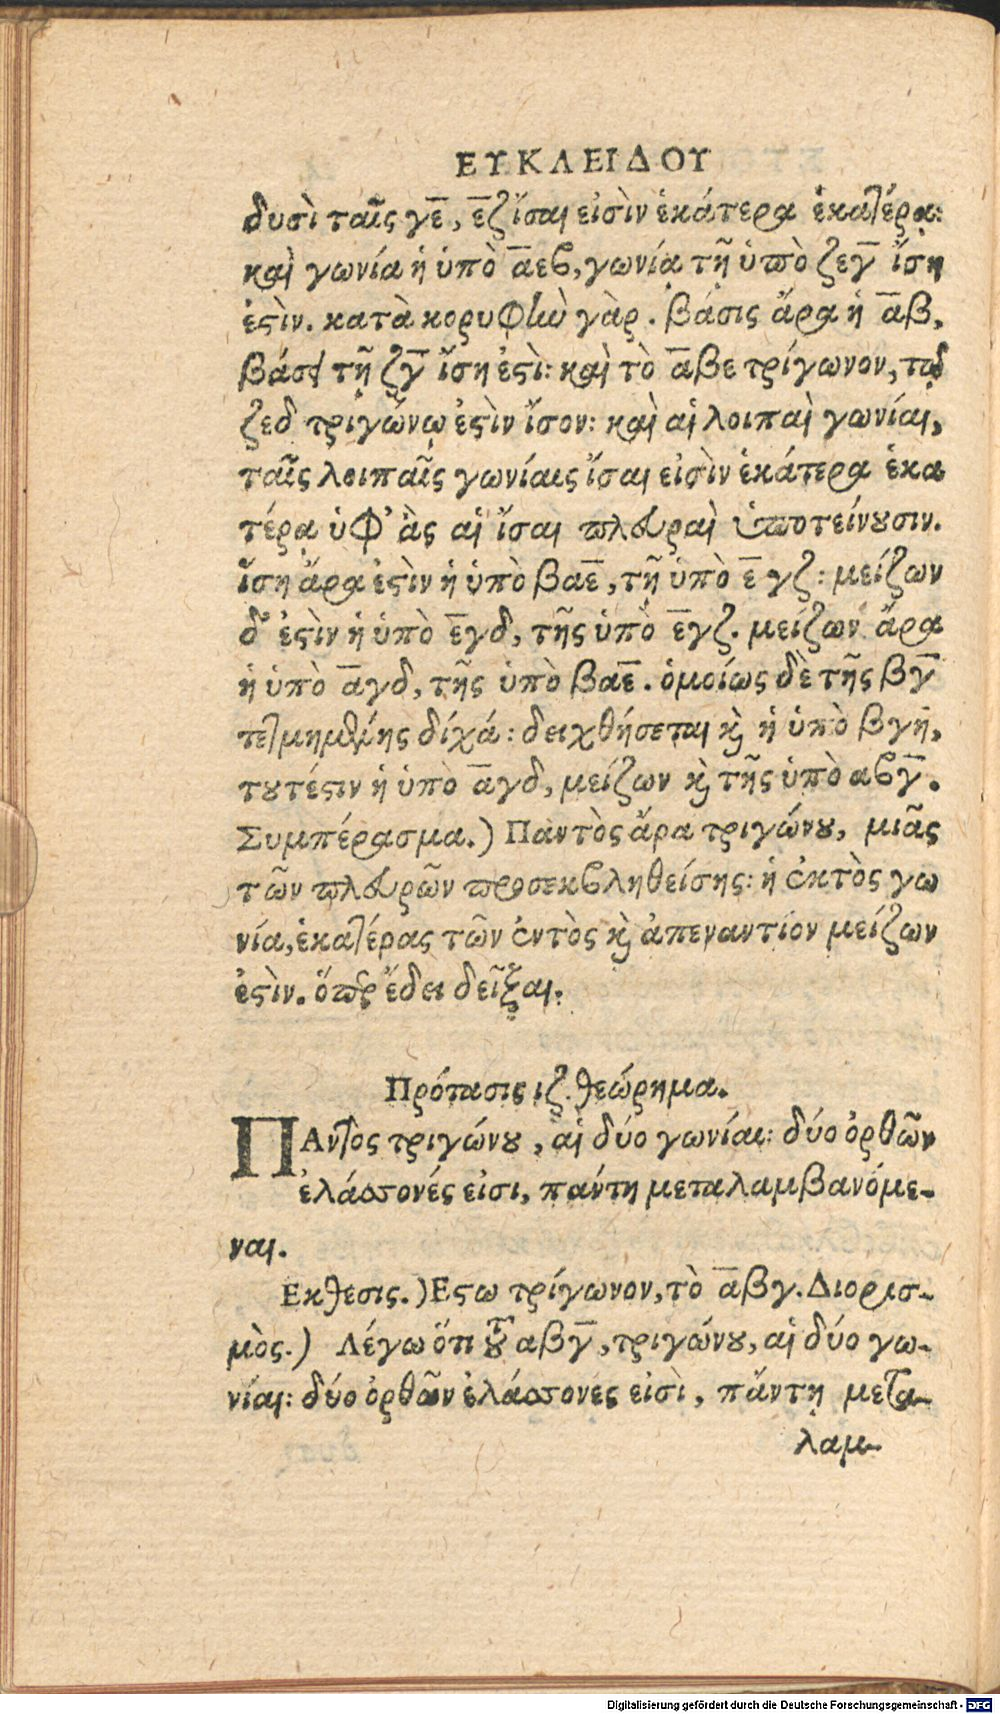 ΕΥΚΛΕΙΔΟΥ
δυσὶ ταῖς γε̅, ε̅ζ ἴσαι εἰσὶν ἑκάτερα ἑκατέρᾳ:
καὶ γωνία ἡ ὑπὸ α̅εβ, γωνίᾳ τῇ ὑπὸ ζεγ̅ ἴση
ἐστὶν. κατὰ κορυφὴν γὰρ. βάσις ἄρα ἡ α̅β,
βάσει τῇ ζγ̅ ἴση ἐστὶ: καὶ τὸ α̅βε τρίγωνον, τῷ
ζεδ τριγώνῳ ἐστὶν ἴσον: καὶ αἱ λοιπαὶ γωνίαι,
ταῖς λοιπαῖς γωνίαις ἴσαι εἰσὶν ἑκάτερα ἑκα
τέρᾳ ὑφ' ἃς αἱ ἴσαι πλευραὶ ὑποτείνουσιν.
ἴση ἄρα ἐστὶν ἡ ὑπὸ βαε̅, τῇ ὑπὸ ε̅γζ: μείζων
δ' ἐστὶν ἡ ὑπὸ ε̅γδ, τῆς ὑπὸ ε̅γζ. μείζων ἄρα
ἡ ὑπὸ α̅γδ, τῆς ὑπὸ βαε̅. ὁμοίως δὲ τῆς βγ̅
τετμημένης δίχά: δειχθήσεται καὶ ἡ ὑπὸ βγη,
τουτέστιν ἡ ὑπὸ α̅γδ, μείζων καὶ τῆς ὑπὸ αβγ̅.
Συμπέρασμα.) Παντὸς ἄρα τριγώνου, μιᾶς
τῶν πλευρῶν προσεκβληθείσης: ἡ ἐκτὸς γω
νία, ἑκατέρας τῶν ἐντὸς καὶ ἀπεναντίον μείζων
ἐστὶν. ὅπερ ἔδει δεῖξαι.
Πρότασις ιζ. θεώρημα.
ΠΑντος τριγώνου, αἱ δύο γωνίαι: δύο ὀρθῶν
ἐλάσσονές εἰσι, πάντη μεταλαμβανόμε-
ναι.
Εκθεσις.) Εστω τρίγωνον, τὸ α̅βγ. Διορισ-
μὸς.) Λέγω ὅτι τοῦ αβγ̅, τριγώνου, αἱ δύο γω-
νίαι: δύο ὀρθῶν ἐλάσσονές εἰσὶ, πάντῃ μετα-
λαμ-
Digitalisierung gefördert durch die Deutsche Forschungsgemeinschaft - DFG